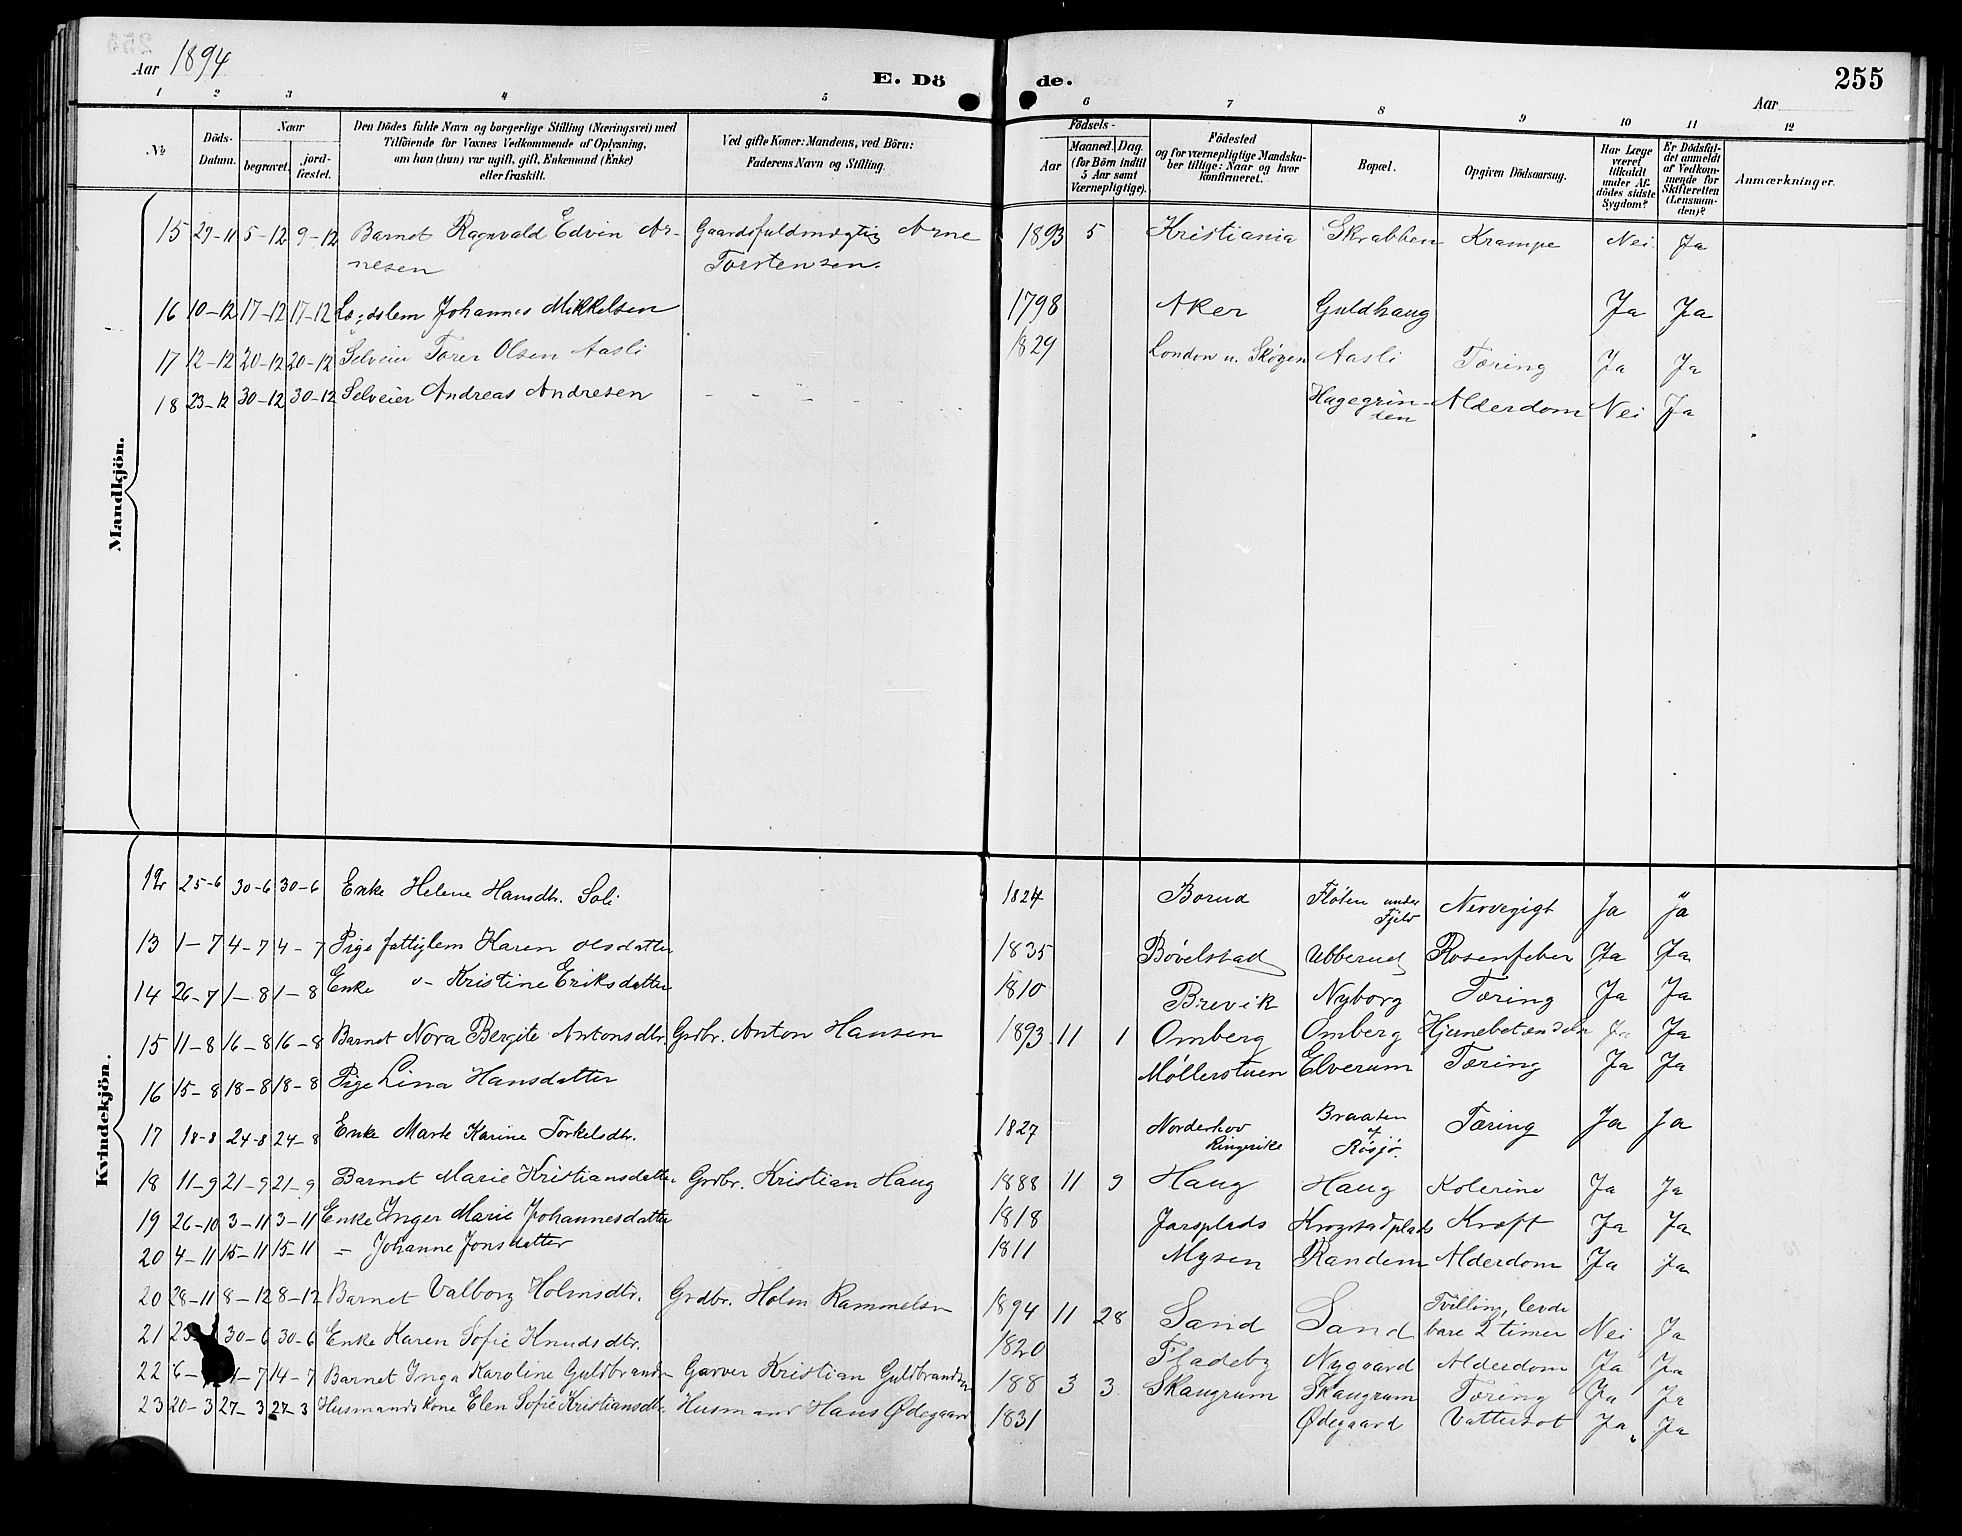 Aar 1894
E. Dö de.
255
Aar
1 2 3 4 5 6 7 8 9 10 11 12
No
Döds-Datum.
Naar begravet. jord-fæstet.
Den Dödes fulde Navn og borgerlige Stilling (Næringsvei) med
Tilföiende for Voxnes Vedkommende af Oplysning,
om han (hun) var ugift, gift, Enkemand (Enke)
eller fraskilt.
Ved gifte Koner: Mandens, ved Börn:
Faderens Navn og Stilling.
Födsels-
Aar Maaned. Dag.
(for Börn indtil
5 Aar samt
Værnepligtige).
Födested
og for værnepligtige Mandska-
ber tillige: Naar og hvor
konfirmeret.
Bopæl.
Opgiven Dödsaarsag.
Har Læge
været
tilkaldt
under Af-
dödes sidste
Sygdom?
Er Dödsfal-
det anmeldt
af Vedkom-
mende for
Skifteretten
(Lensman-
den)?
Anmærkninger.
Mandkjön.
15 29-11 5-12 9-12 Barnet Ragnvald Edvin Ar- Gaardsfuldmægtig Arne 1893 5 Kristiania Skrabben Krampe Nei Ja
nesen Torstensen.
16 10-12 17-12 17-12 Lægdslem Johannes Mikkelsen 1798 Aker Guldhaug Ja Ja
17 12-12 20-12 20-12 Selveier Torer Olsen Aasli 1829 London u. Skogen Aasli Tæring Ja Ja
18 23-12 30-12 30-12 Selveier Andreas Andresen - - - - - - Hagegrin- Alderdom Nei Ja
den
Kvindekjön.
12 25-6 30-6 30-6 Enke Helene Hansdtr. Soli 1824 Borud Fløten under Nervegigt Ja Ja
13 1-7 4-7 4-7 Pige fattiglem Karen Olsdatter 1835 Bøvelstad Ubberud Rosenfeber Ja Ja
14 26-7 1-8 1-8 Enke -"- Kristine Eriksdatter 1810 Brevik Nyborg Tæring Ja Ja
15 11-8 16-8 16-8 Barnet Nora Bergite Antonsdtr. Grdbr. Anton Hansen 1893 11 1 Omberg Omberg Hjernebetændelse Ja Ja
16 15-8 18-8 18-8 Pige Lina Hansdatter Møllerstuen Elverum Tæring Ja Ja
17 18-8 24-8 24-8 Enke Marte Karine Torkelsdtr. 1827 Norderhov Ringerike Braaten af Røsjø. Tæring Ja Ja
18 11-9 21-9 21-9 Barnet Marie Kristiansdatter Grdbr. Kristian Haug 1888 11 9 Haug Haug Kolerine Ja Ja
19 26-10 3-11 3-11 Enke Inger Marie Johannesdatter 1818 Jarsplads Krogstadplads Kræft Ja Ja
20 4-11 15-11 15-11 - Johanne Jonsdatter 1811 Mysen Randem Alderdom Ja Ja
20 28-11 8-12 8-12 Barnet Valborg Holmsdtr. Grdbr. Holm Rammelsn 1894 11 28 Sand Sand Tvilling, levde
bare 2 timer Nei Ja
21 23 30-6 30-6 Enke Karen Sofie Knudsdtr. 1820 Fladeby Nygaard Alderdom Ja Ja
22 6- 14-7 14-7 Barnet Inga Karoline Guldbrands- Garver Kristian Guldbrandsen 188 3 3 Skaugrum Skaugrum Tæring Ja Ja
23 20-3 27-3 27-3 Husmandskone Elen Sofie Kristiansdtr. Husmand Hans Ødegaard 1831 Ødegaard Vattersot Ja Ja